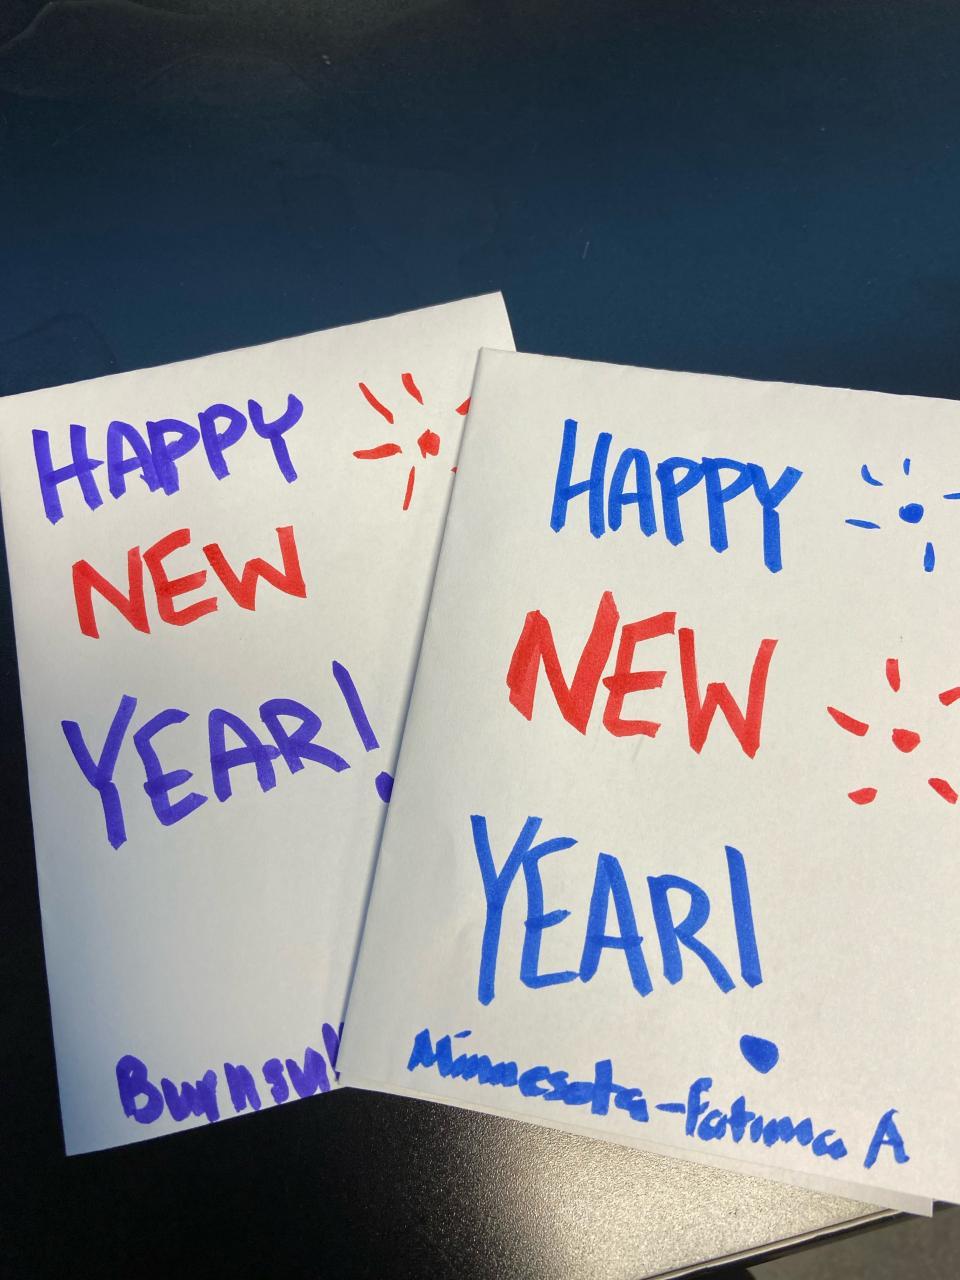 HAPPY
NEW
YEAR!
HAPPY
NEW
YEAR!
Minnesota-fatima A